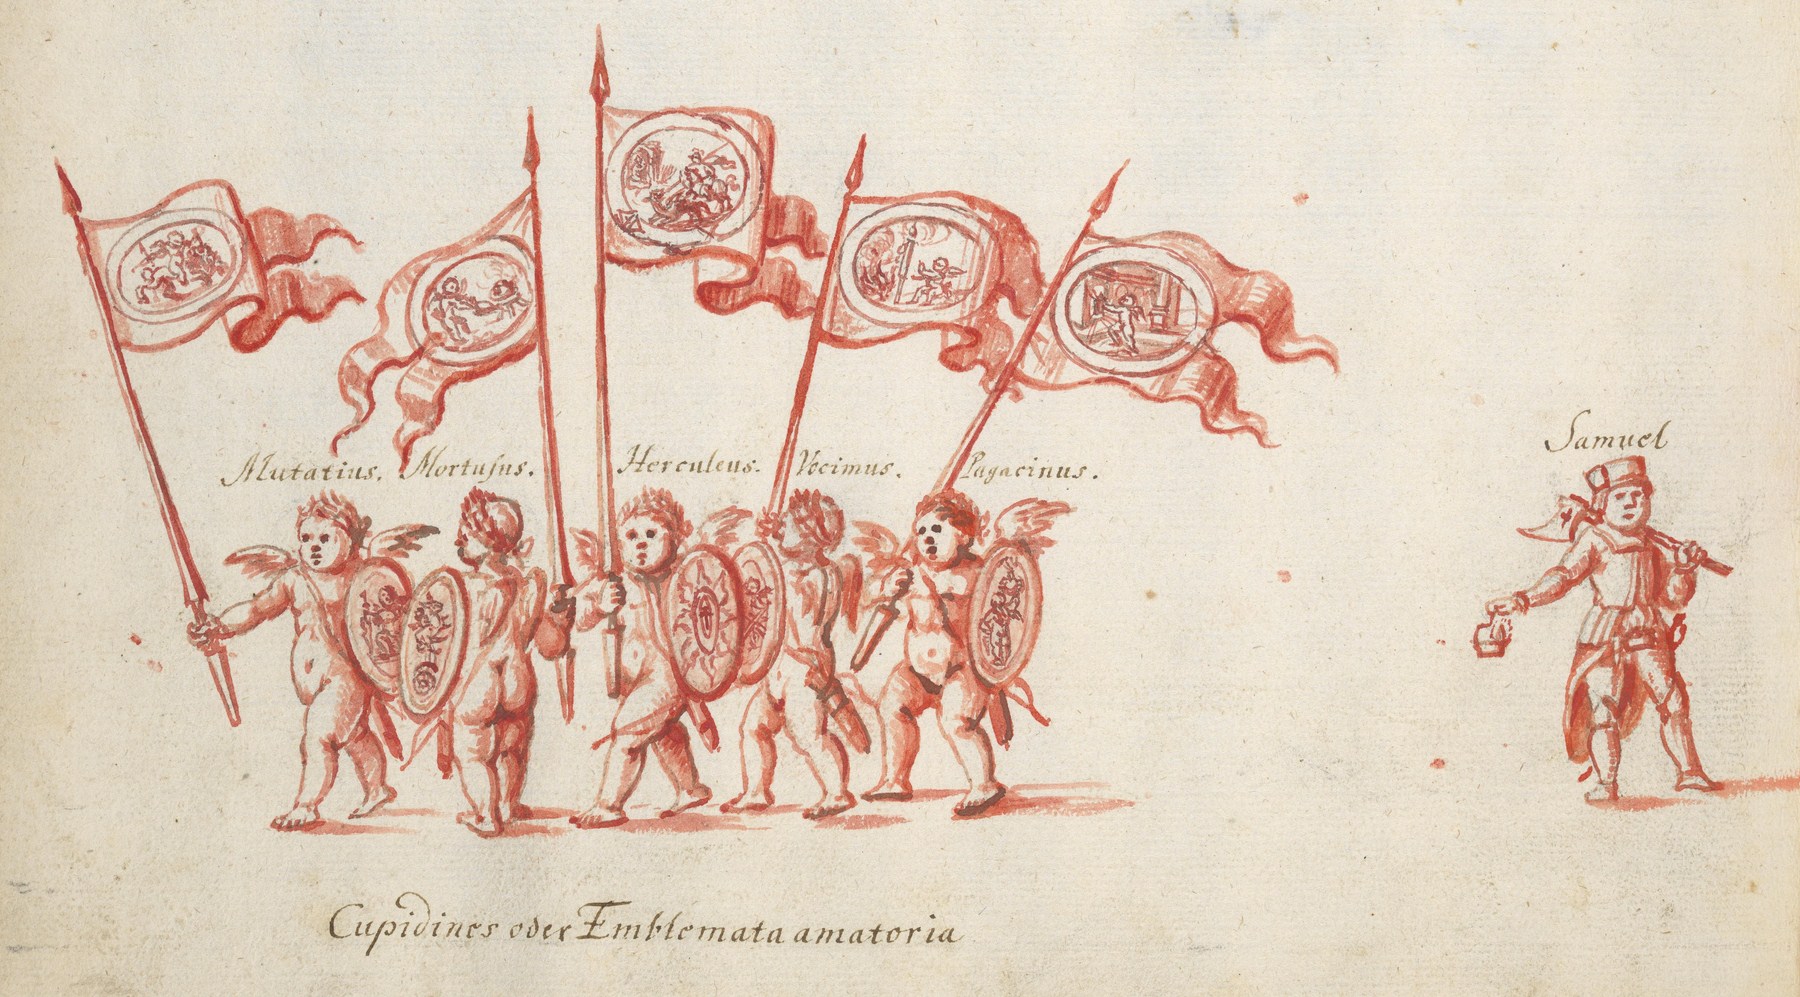 Samuel
Mutatius. Mortusus. Herculeus. Vocimus. Pugacinus.
Cupidines oder Emblemata amatoria